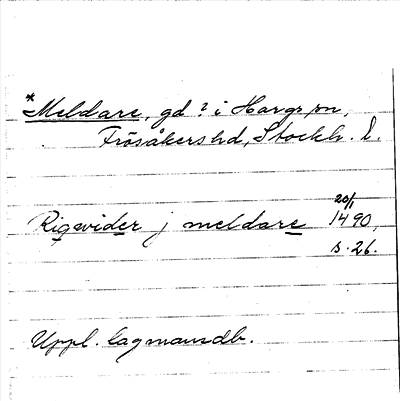 *Meldare, gd? i Hargs sn,
Frösåkers hd, Stockh. l.
20/1
Rigwider j meldare 1490,
s. 26.
Uppl. lagmansdb.